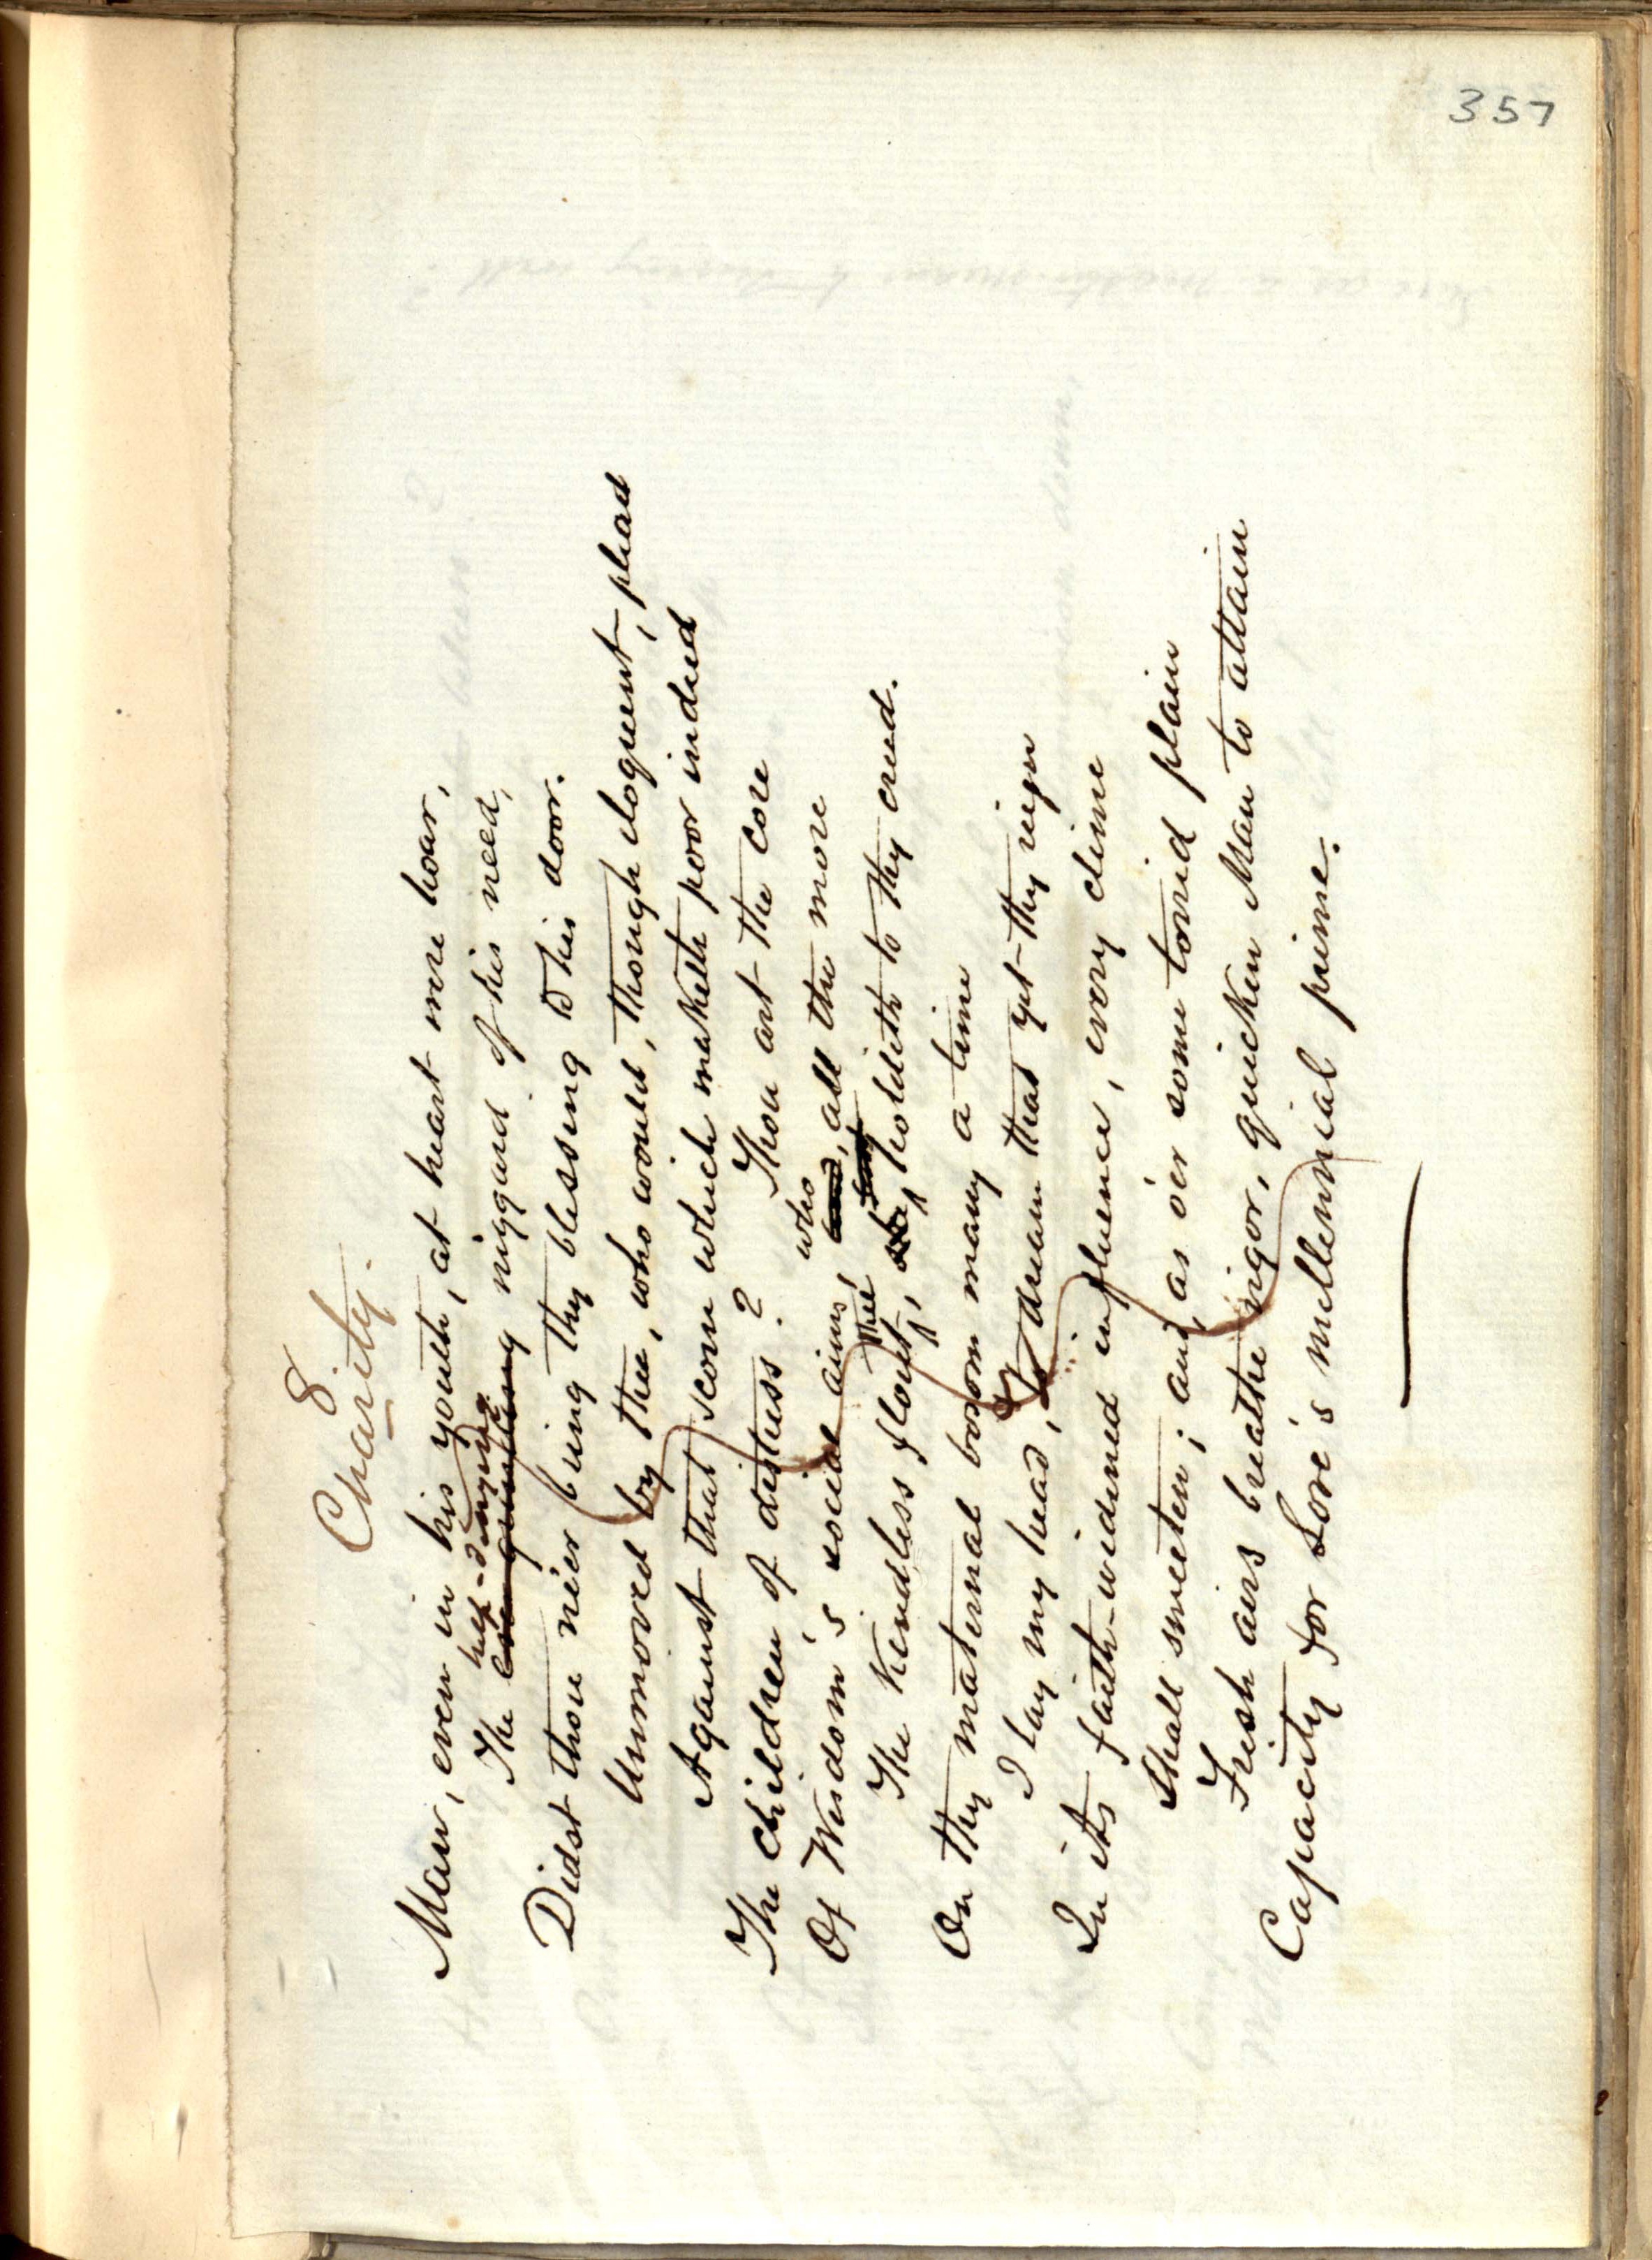 357
8
Charity.
Man, even in his youth, at heart were hoar,
help-denying
The niggard of his need,
Didst thou ne'er bring thy blessing to his door.
Unmoved by thee, who would, though eloquent, plead
Against that scorn which maketh poor indeed
The children of distress? Thou art the core
who
Of Wisdom's social aims, all the more
thee
The kindless flout, holdeth to thy creed.
On thy maternal bosom many a time
I lay my head, to dream that yet thy reign
In its faith-widened influence, every clime
Shall sweeten; and, as o'er some torrid plain
Fresh airs breathe vigor, quicken Man to attain
Capacity for Love's millennial prime.